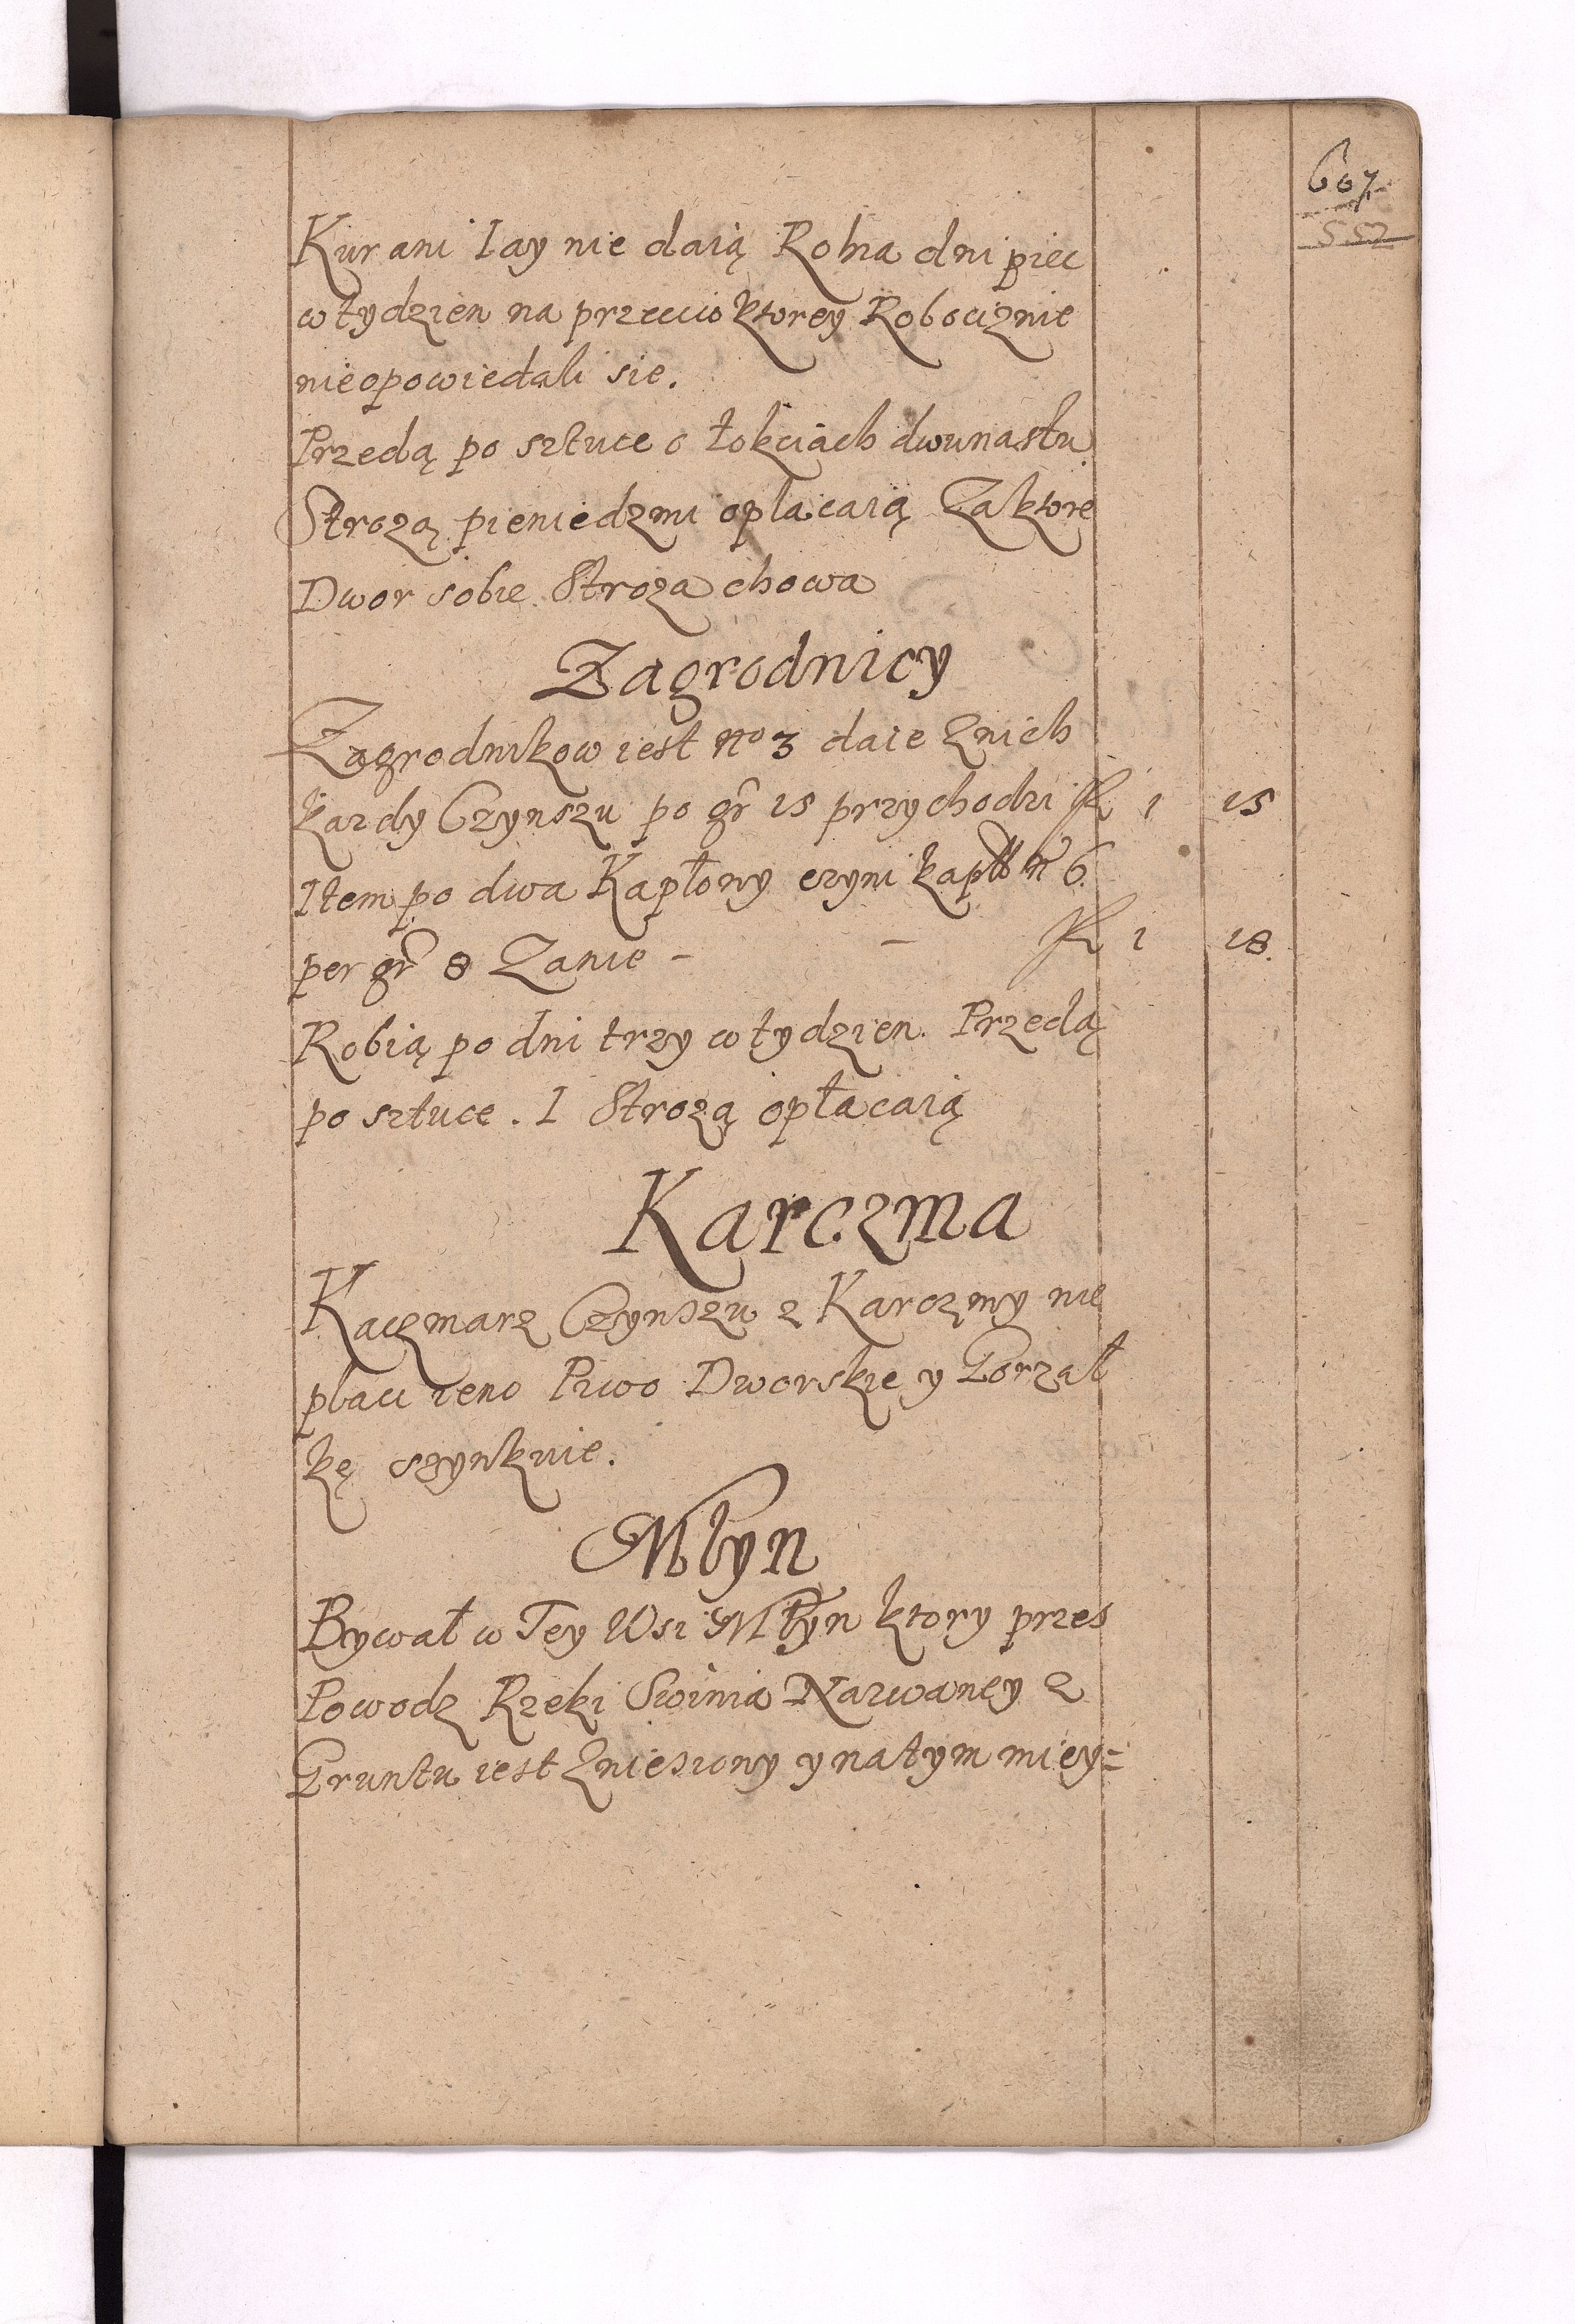 607
552
Kur ani Iay nie daią Robią dni piec
w tydzien na przeciw ktorey Robociznie
nieopowiedali sie.
Przedą po sztuce o łokciach dwunastu
Strozą pieniedzmi oplacaią Za ktore
Dwor sobie Stroza chowa
Zagrodnicy
Zagrodnikow iest no 3 daie Znich
kazdy Czynszu po gr 15 przychodzi fl 1 15
Item po dwa Kapłony czyni kapł n 6
per gr 8 Zanie - - fl 1 18.
Robią po dni trzy w tydzien. Przedą
po sztuce. I Strozą opłacaią
Karczma
Kaczmarz Czynszu z Karczmy nie
placi ieno Piwo Dworskie y Gorzał
kę szynkuie.
Mlyn
Bywał w Tey Wsi Młyn ktory przes
Powodz Rzeki Swinia Nazwaney z
Gruntu iest Zniesiony y na tym miey=